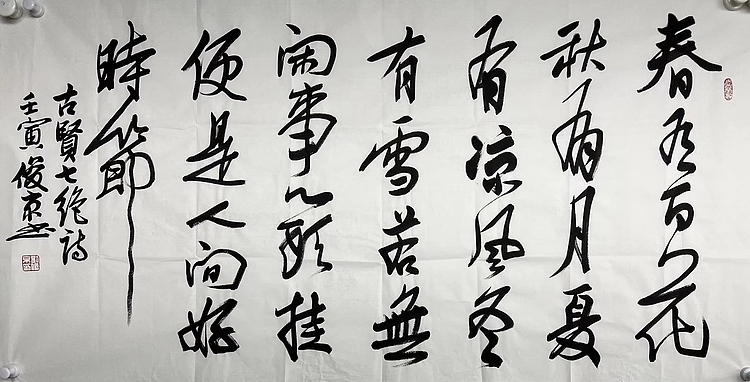 春有百花
秋有月夏
有凉風冬
有雪若無
閑事心頭挂
便是人间好
時節
古賢七绝詩
壬寅俊京书